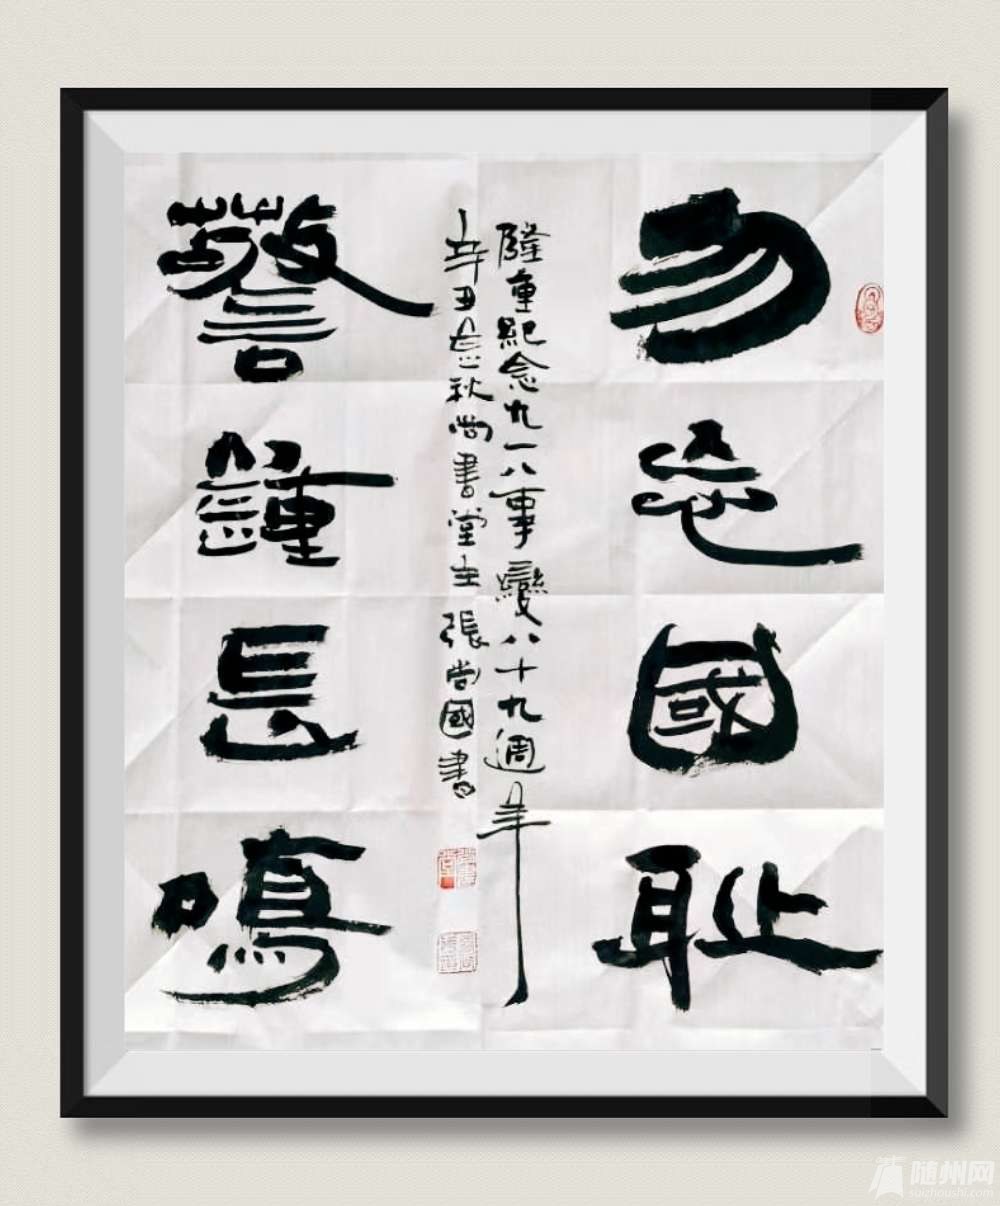 勿忘國耻
隆重紀念九一八事變八十九週年
辛丑秋尚書堂主張尚國書
警鐘長鳴
随州网
suizhoushi.com